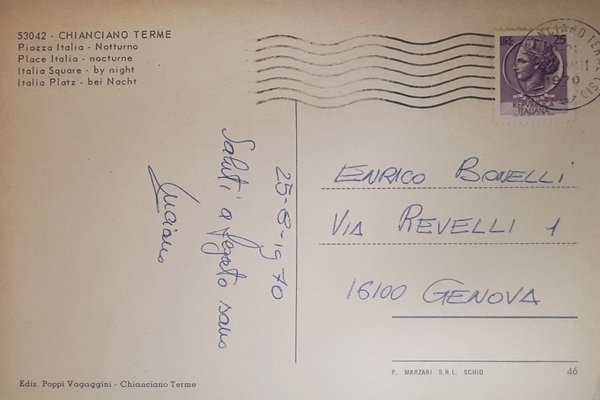 53042 - CHIANCIANO TERME
Piazza Italia - Notturno
Place Italia - nocturne
Italia Square - by night
Italia Platz - bei Nacht
LIRE 25
REPVBBLICA
ITALIANA
1970
25-8-1970
Saluti a fegato sano
Luciano
ENRICO BONELLI
VIA REVELLI 1
16100 GENOVA
Ediz. Poppi Vagaggini - Chianciano Terme
P. MARZARI S.R.L. SCHIO
46